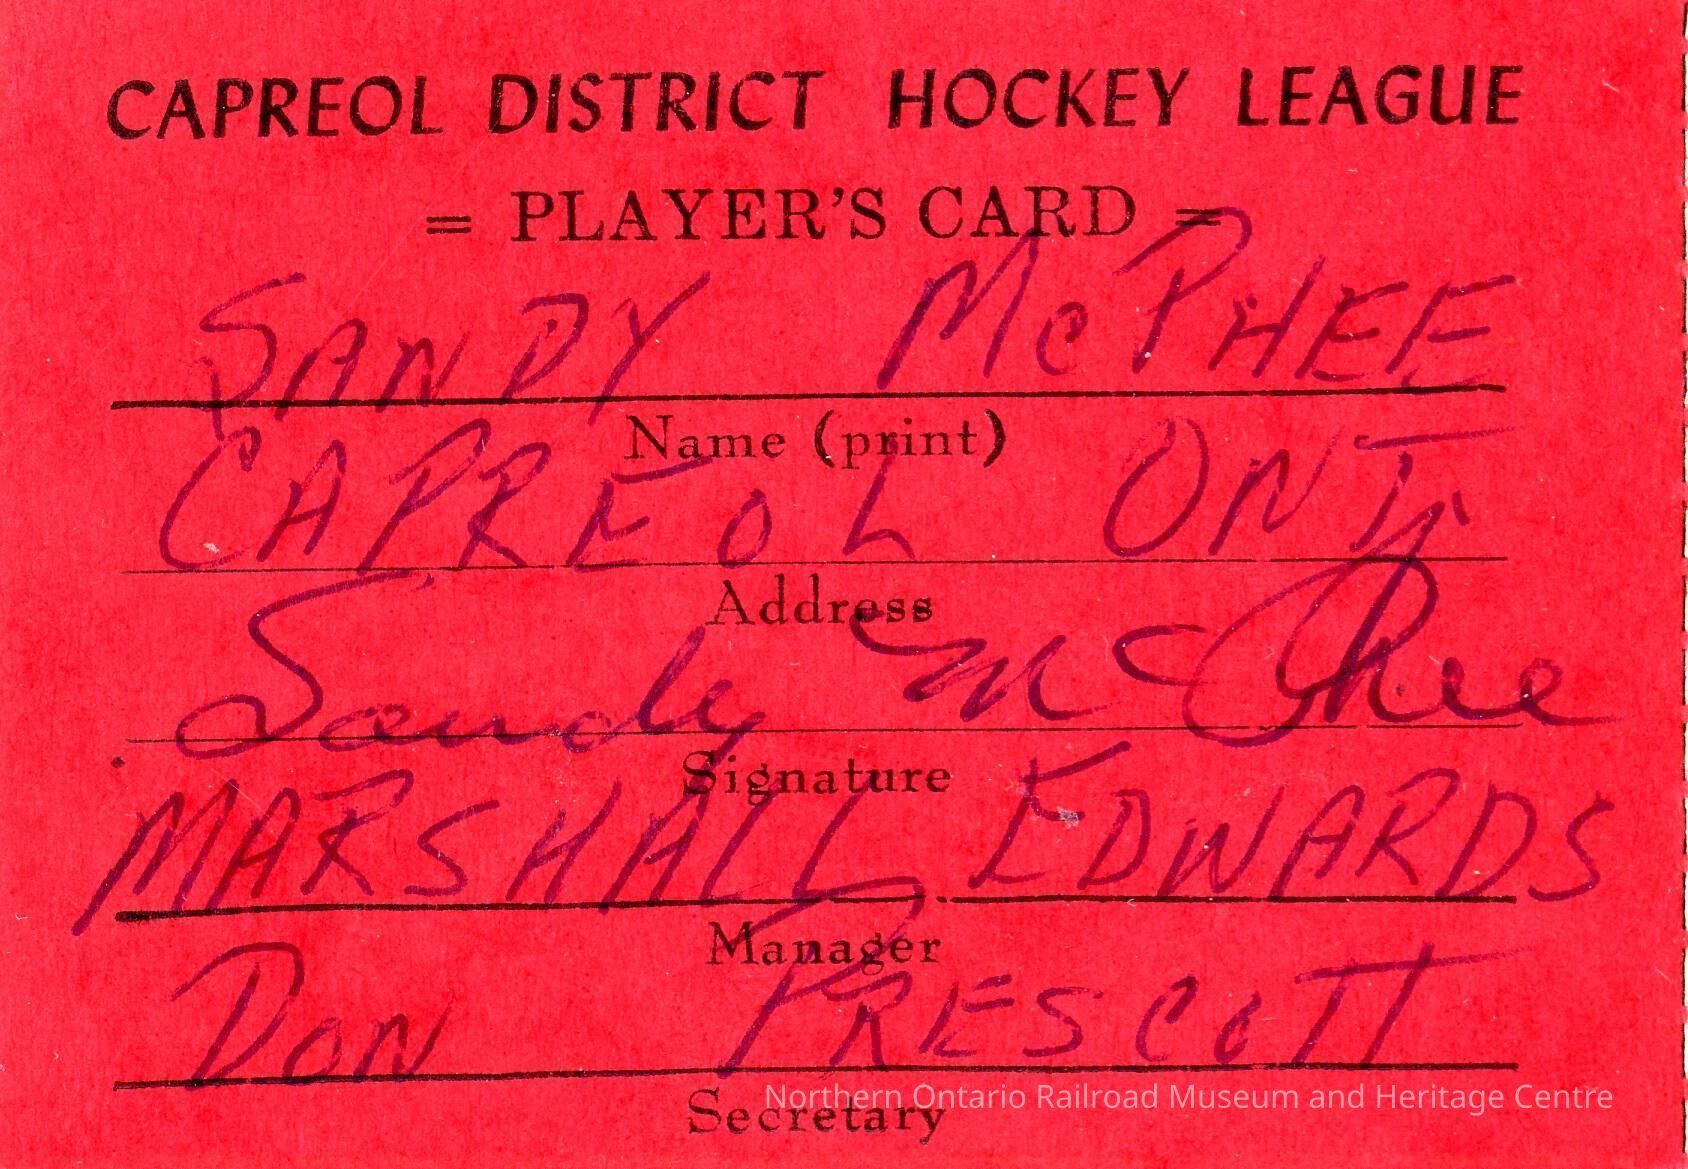 CAPREOL DISTRICT HOCKEY LEAGUE
= PLAYER'S CARD =
SANDY McPHEE
Name (print)
CAPREOL ONT
Address
Sandy McPhee
Signature
MARSHALL EDWARDS
Manager
DON PRESCOTT
Secretary
Northern Ontario Railroad Museum and Heritage Centre